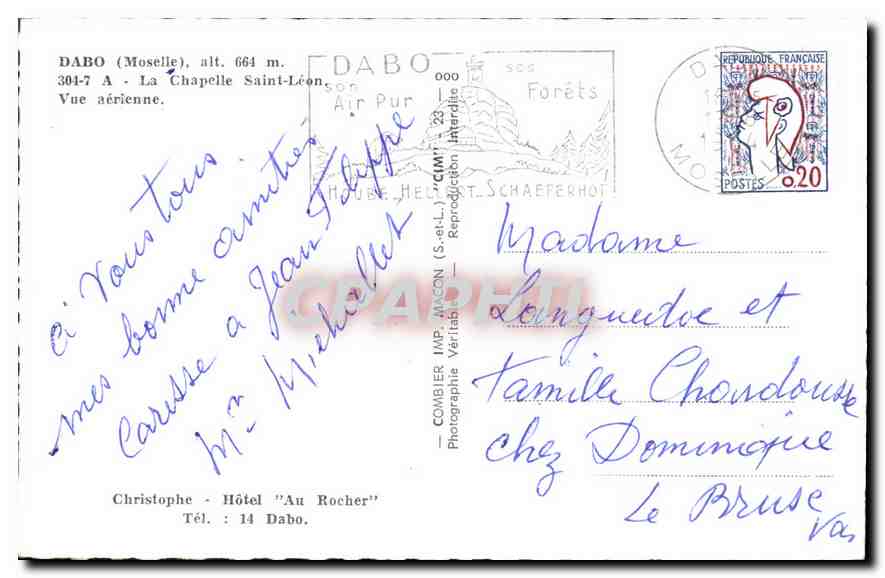 DABO (Moselle), alt. 664 m.
304-7 A - La Chapelle Saint-Léon.
Vue aérienne.
DABO
son
Air Pur
ses
Forêts
HOUBE_HELLERT_SCHAEFERHOF
RÉPUBLIQUE FRANÇAISE
POSTES 0.20
à Vous tous
mes bonne amitiés
Caresse a Jean Filippe
Mme Michallet
— COMBIER IMP. MACON (S.-et-L.) "CIM" — 23 — 000
Photographie Véritable — Reproduction Interdite
CPAPHIL
Madame
Languedoc et
Famille Chardousse
chez Dominique
Le Bruse
Var
Christophe - Hôtel "Au Rocher"
Tél. : 14 Dabo.